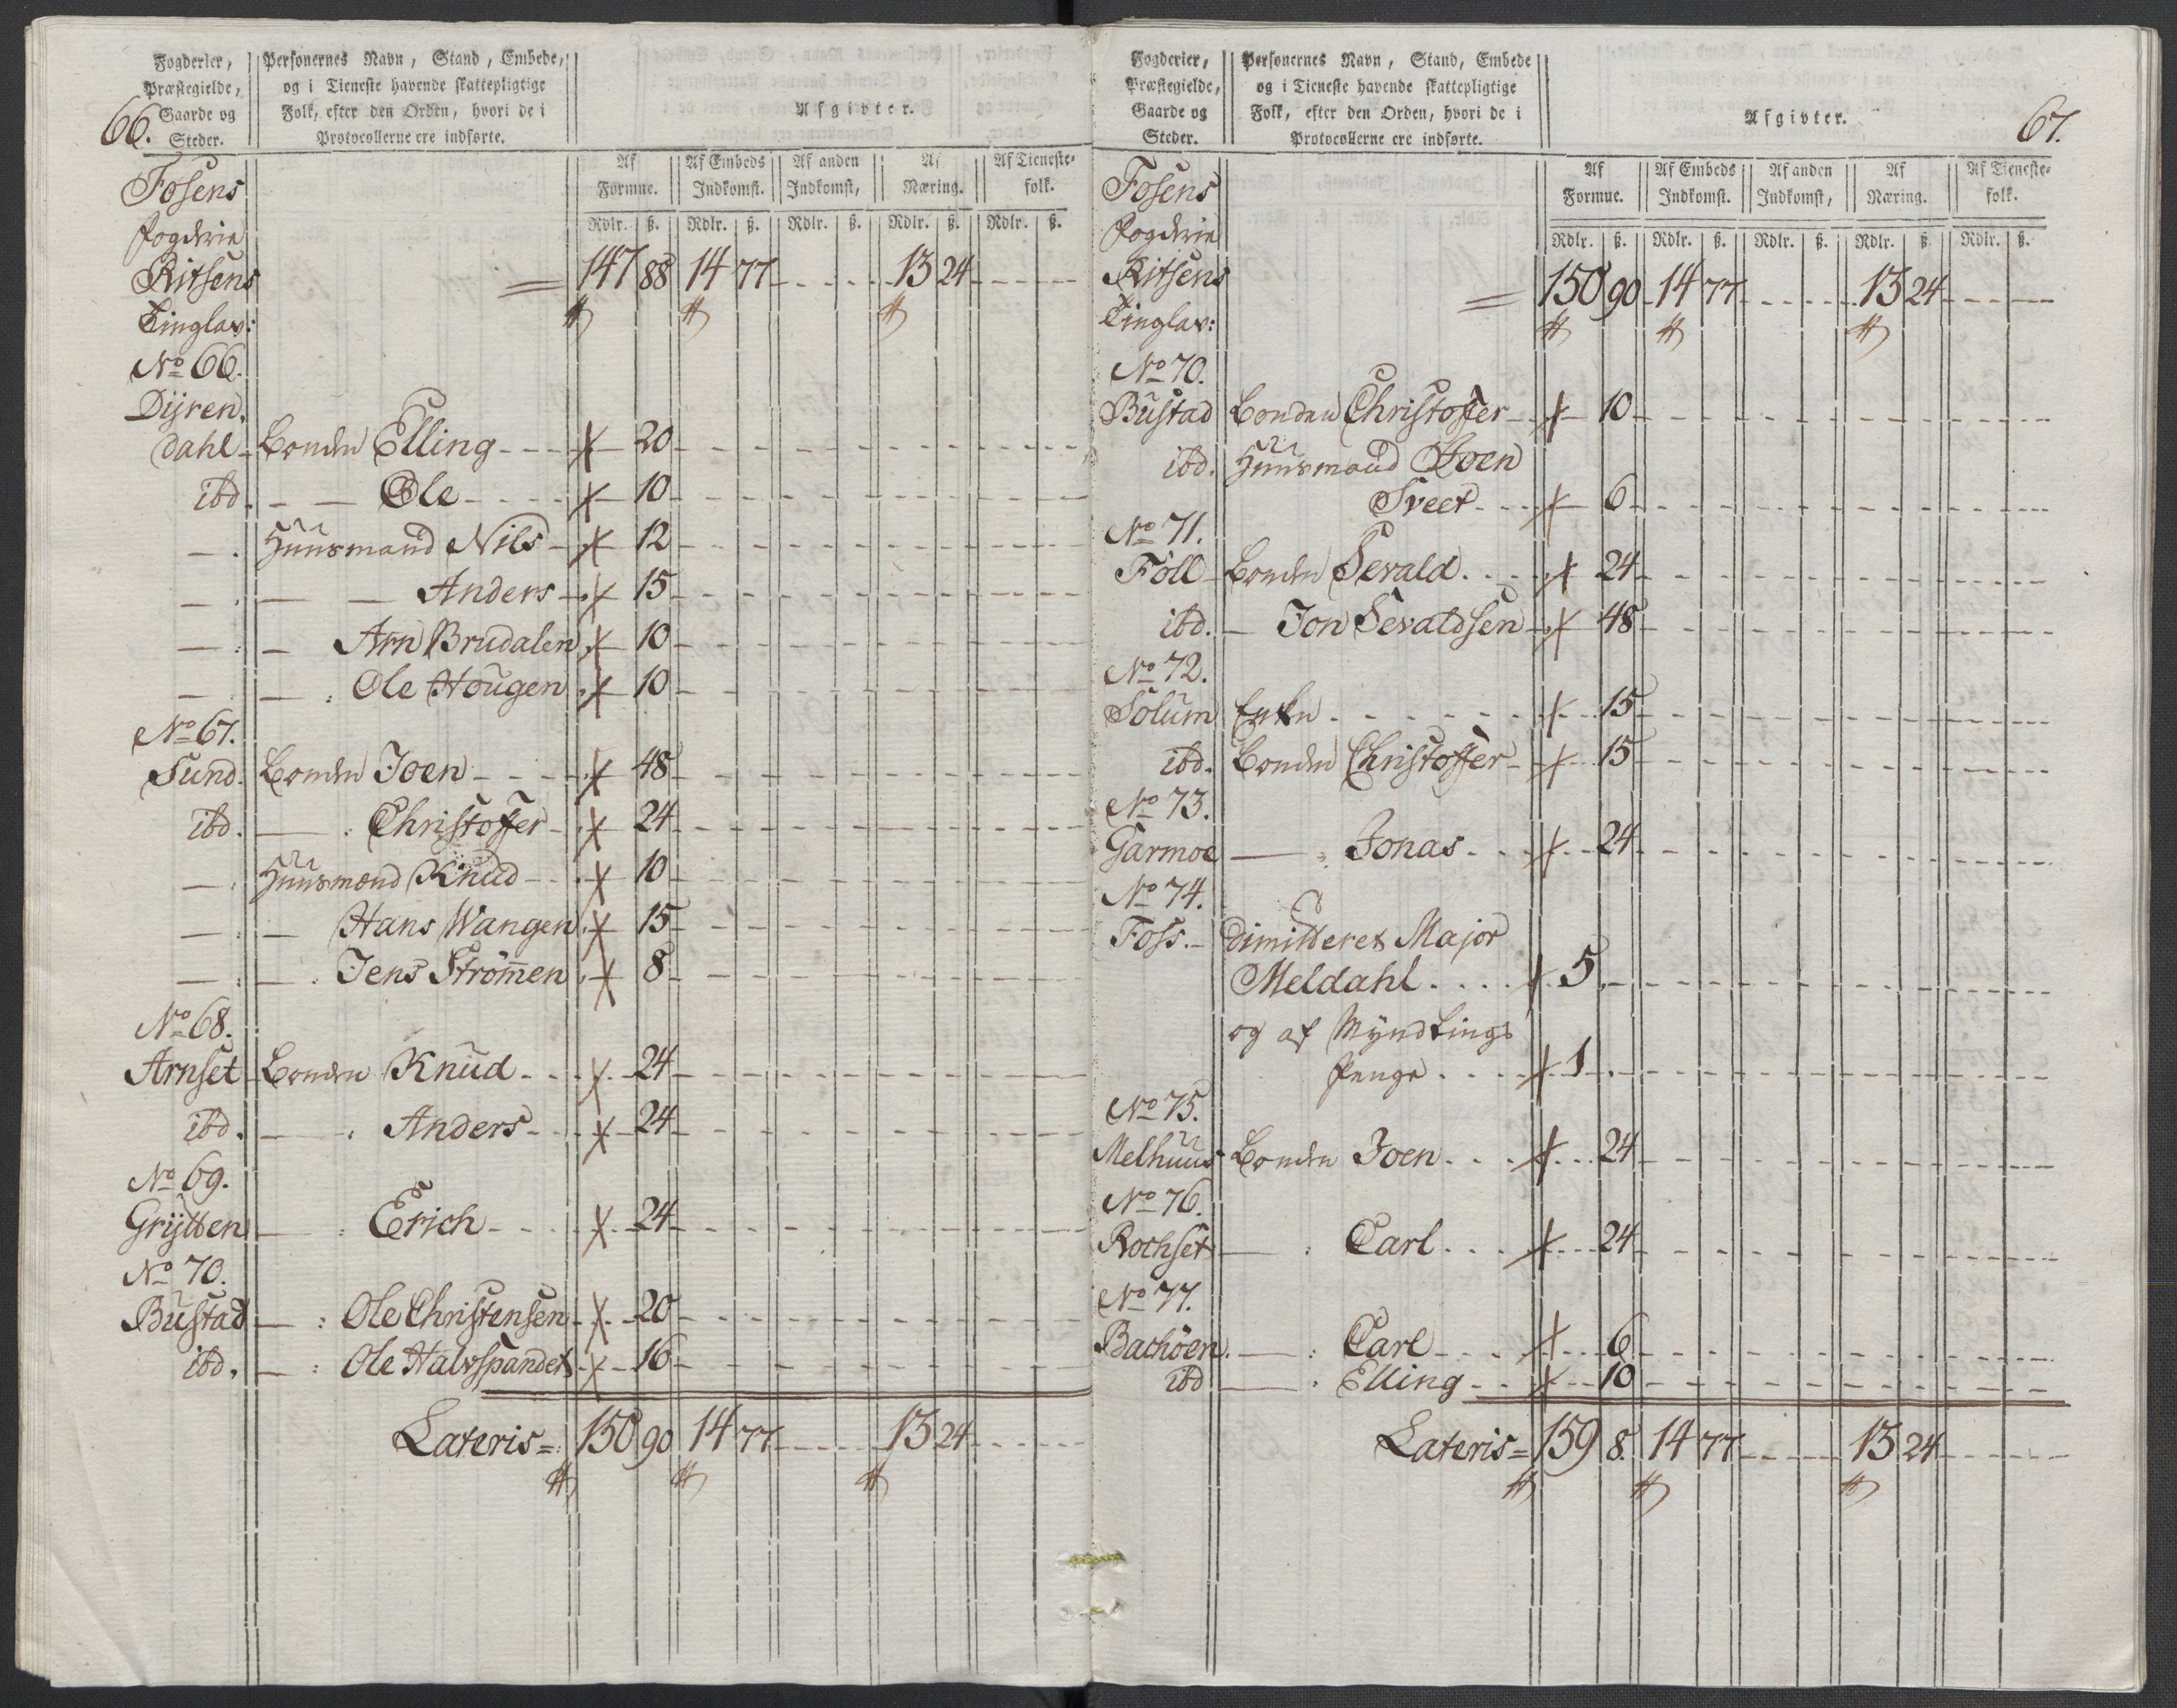 66.
Fogderier,
Præstegielde,
Gaarde og
Steder.
Personernes Navn, Stand, Embede,
og i Tieneste havende skattepligtige
Folk, efter den Orden, hvori de i
Protocollerne ere indførte.
Afgivter.
Af Formue. Af Embeds Indkomst. Af anden Indkomst, Af Næring. Af Tieneste-folk.
Rdlr. ß. Rdlr. ß. Rdlr. ß. Rdlr. ß. Rdlr. ß.
Fosens
Fogderie
Ritsens = 147 88 14 77 - - - 13 24 - - -
Tinglav:
No 66.
Dyren,
dahl - Bonden Elling - - - 20
ibd. - - Ole - - - 10
- . Huusmand Nils - 12
- . - - Anders - 15
- : - Arn Brudalen 10
- . - : Ole Hougen 10
No 67.
Sund. Bonden Joen - - - 48
ibd. - : Christoffer - 24
- : Huusmand Knud - - 10
- : - Hans Wangen 15
- : - : Jens Strömen 8
No 68.
Arnset - Bonden Knud - - - 24
ibd. - : Anders - - 24
No 69.
Grytten - : Erich - - - 24
No 70.
Bustad - : Ole Christensen - 20
ibd. - : Ole Halvspandet - 16
Lateris = 150 90 14 77 - - - 13 24 - - -
67.
Fogderier,
Præstegielde,
Gaarde og
Steder.
Personernes Navn, Stand, Embede
og i Tieneste havende skattepligtige
Folk, efter den Orden, hvori de i
Protocollerne ere indførte.
Afgivter.
Af Formue. Af Embeds Indkomst. Af anden Indkomst, Af Næring. Af Tieneste-folk.
Rdlr. ß. Rdlr. ß. Rdlr. ß. Rdlr. ß. Rdlr. ß.
Fosens
Fogderie
Ritsens = 150 90 14 77 - - - 13 24 - - -
Tinglav:
No 70.
Bustad Bonden Christoffer - 10
ibd. Huusmand Joen
Sveet - - - 6
No 71.
Foll - Bonden Sevald . . . 24
ibd. - Jon Sevaldsen - 48
No 72.
Solum Enken - - - 15
ibd. Bonden Christoffer - 15
No 73.
Garmoe - : Jonas - - - 24
No 74.
Foss. - dimitteret Major
Meldahl . . . . 5 .
og af Myndtlings
Penge . . . . 1 .
No 75.
Melhuus Bonden Joen . . . 24
No 76.
Rochset - : Carl . . . 24
No 77.
Bachöen. - : Carl - - - 6
ibd - . Elling - - 10
Lateris = 159 8. 14 77 - - - 13 24 - - -